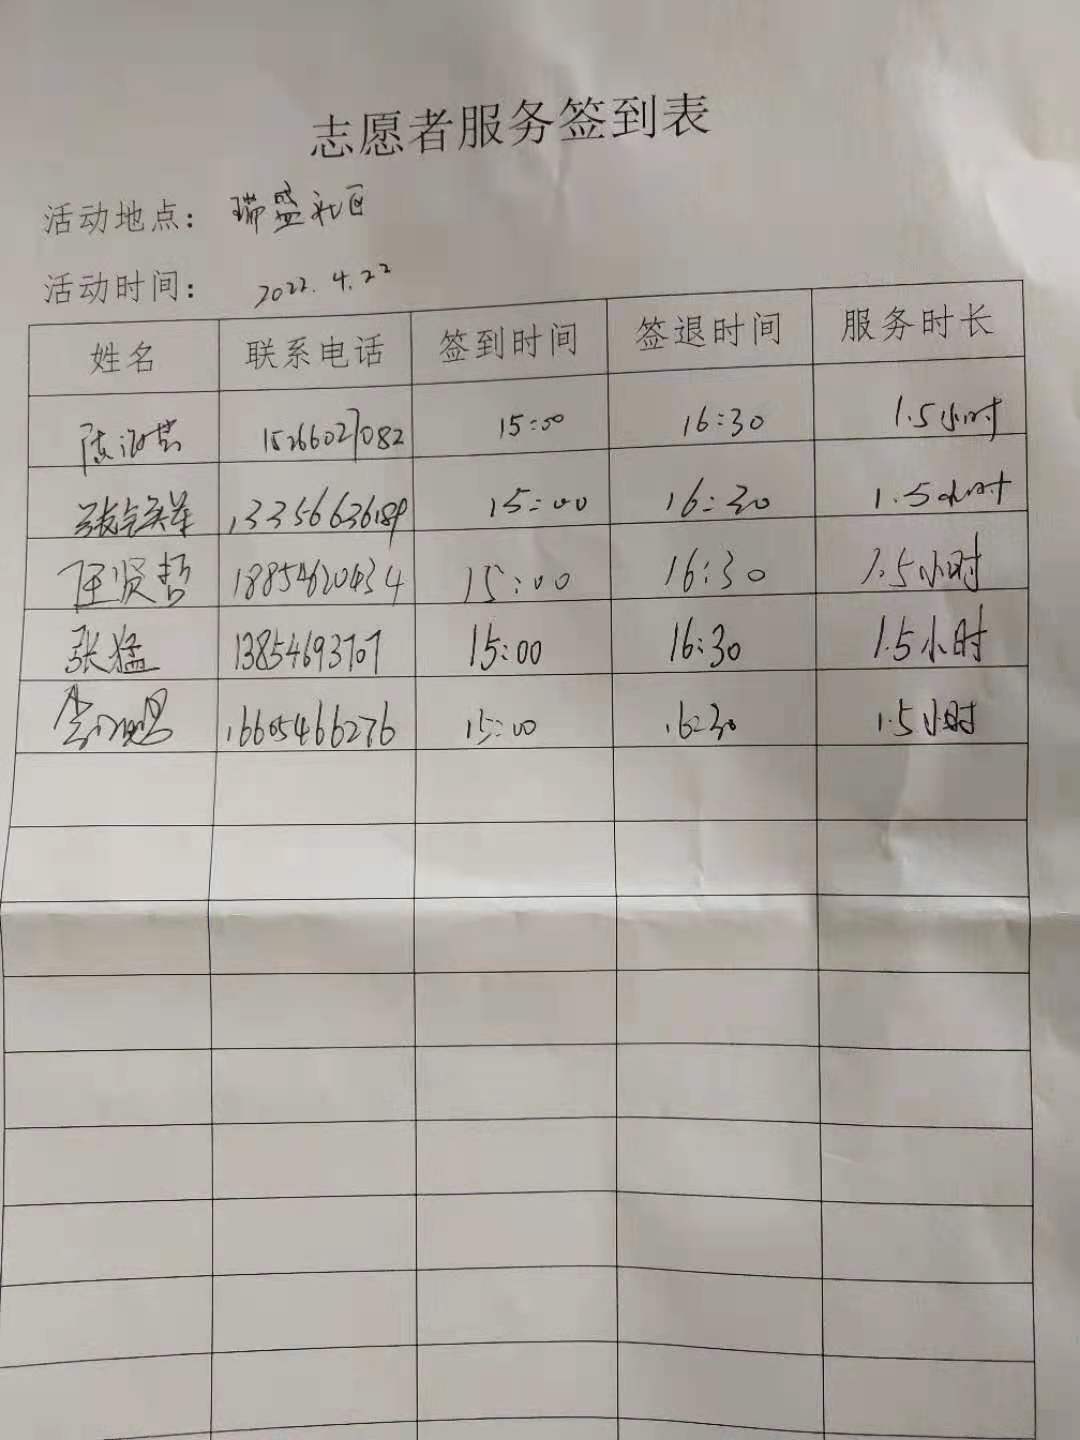 志愿者服务签到表
活动地点: 瑞盛社区
活动时间: 2022.4.22
姓名 联系电话 签到时间 签退时间 服务时长
15266027082 15:00 16:30 1.5小时
13356636189 15:00 16:30 1.5小时
任贤哲 18854620434 15:00 16:30 1.5小时
张猛 13854693707 15:00 16:30 1.5小时
16605466276 15:00 16:30 1.5小时